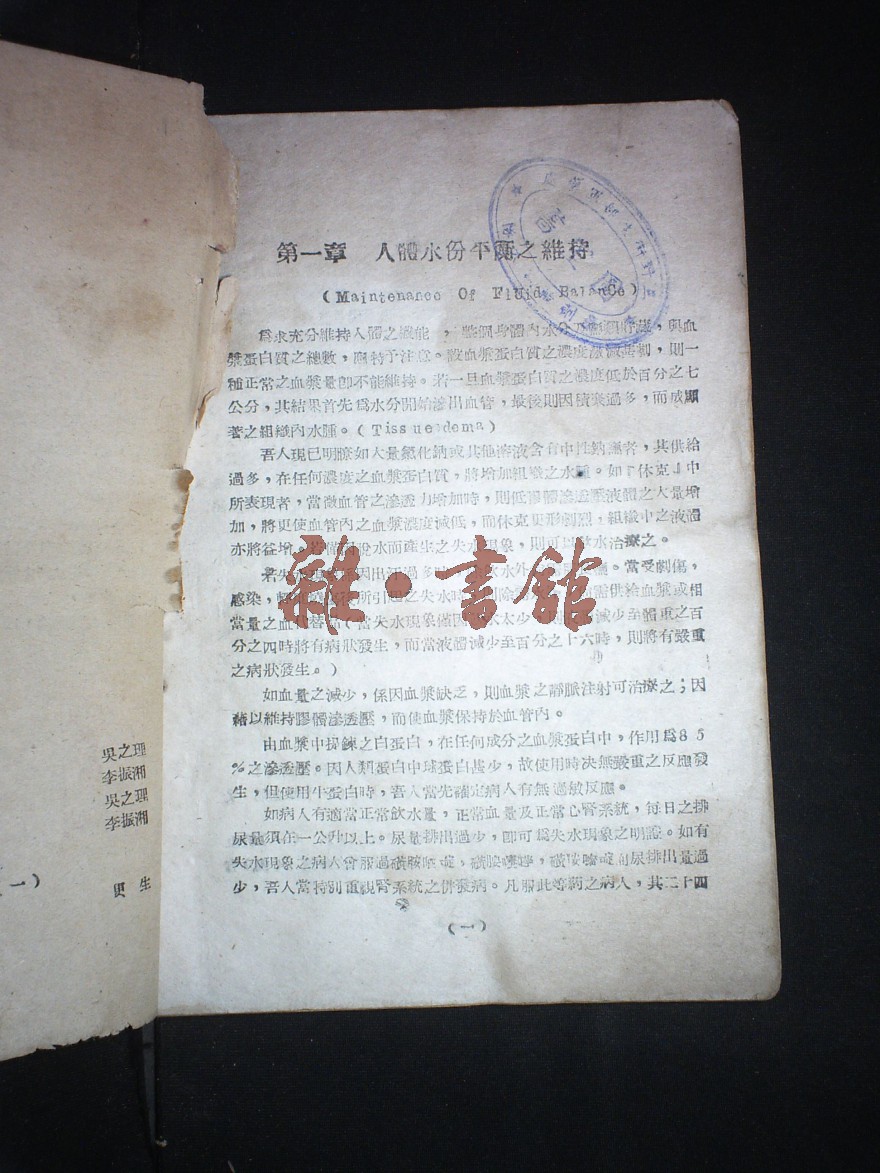 第一章　人體水份平衡之維持
(Maintenance Of Fluid Balance)
為求充分維持人體之機能，整個身體內水分，與血
漿蛋白質之總數，應特予注意。設血漿蛋白質之濃度，則一
種正常之血漿量卽不能維持。若一旦血漿蛋白質之濃度低於百分之七
公分，其結果首先為水分開始滲出血管，最後則因積聚過多，而成顯
著之組織內水腫。(Tissue edema)
吾人現已明瞭如大量氯化鈉或其他溶液含有中性鈉鹽者，其供給
過多，在任何濃度之血漿蛋白質，將增加組織之水腫。如『休克』中
所表現者，當微血管之滲透力增加時，則低膠體滲透壓液體之大量增
加，將更使血管內之血漿濃度減低，而休克更形劇烈，組織中之液體
亦將益增。脫水而產生之失水現象，則可以飲水治療之。
若失水因出汗過多時飲水外。當受劇傷，
感染，所引起之失水時需供給血漿或相
當量之血代替品(當失水現象僅因飲水太少減少至體重之百
分之四時將有病狀發生，而當液體減少至百分之十六時，則將有嚴重
之病狀發生。)
如血量之減少，係因血漿缺乏，則血漿之靜脈注射可治療之；因
藉以維持膠體滲透壓，而使血漿保持於血管內。
由血漿中提鍊之白蛋白，在任何成分之血漿蛋白中，作用為85
%之滲透壓。因人類蛋白中球蛋白甚少，故使用時決無嚴重之反應發
生，但使用牛蛋白時，吾人當先確定病人有無過敏反應。
如病人有適當正常飲水量，正常血量及正常心腎系統，每日之排
尿量須在一公升以上。尿量排出過少，卽可為失水現象之明證。如有
失水現象之病人曾服過磺胺，磺胺，磺胺嘧啶而尿排出量過
少，吾人當特別重視腎系統之併發病。凡服此等藥之病人，其二十四
(一)
雜・書館
吳之理
李振湘
吳之理
李振湘
更生
一)